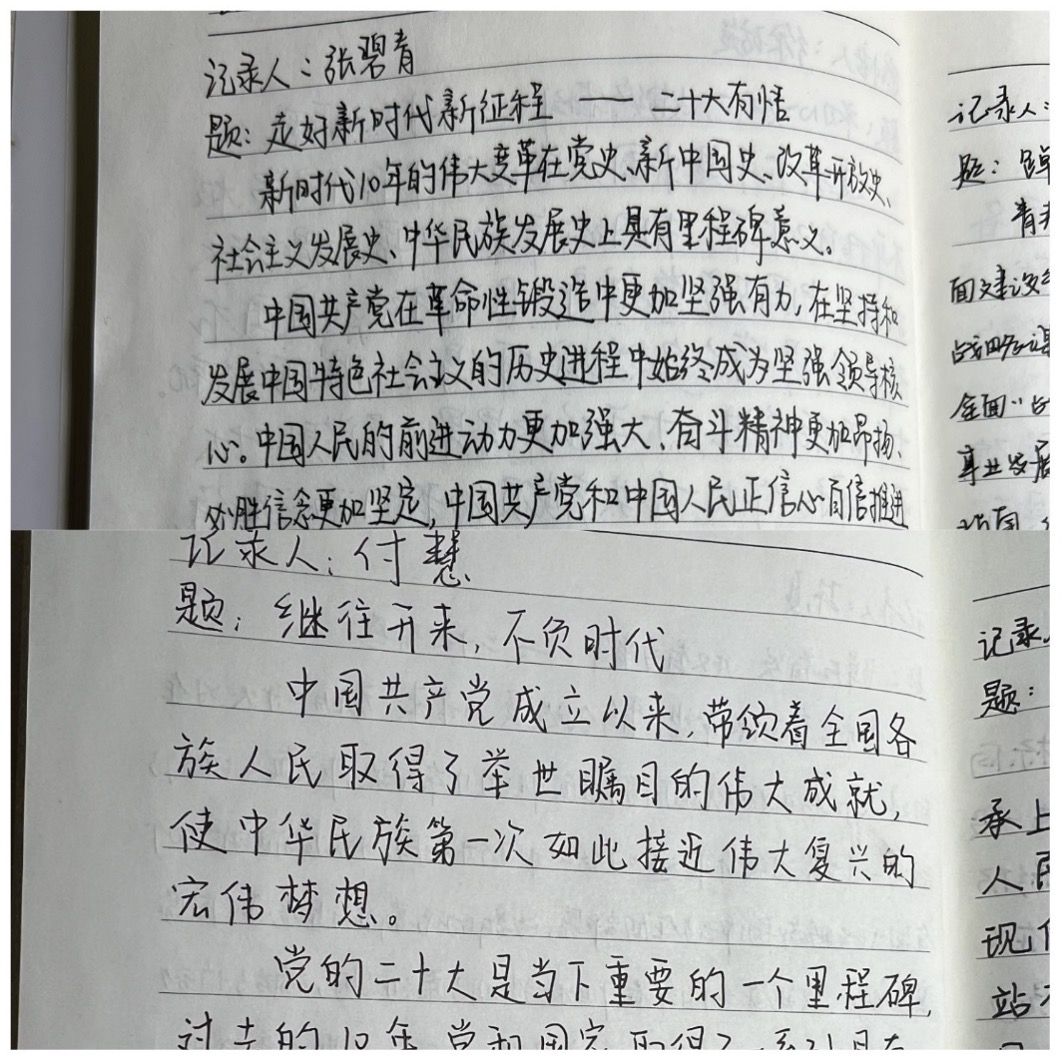 记录人：张碧青
题：走好新时代新征程 —— 二十大有悟
新时代10年的伟大变革在党史、新中国史、改革开放史、
社会主义发展史、中华民族发展史上具有里程碑意义。
中国共产党在革命性锻造中更加坚强有力，在坚持和
发展中国特色社会主义的历史进程中始终成为坚强领导核
心。中国人民的前进动力更加强大、奋斗精神更加昂扬、
必胜信念更加坚定，中国共产党和中国人民正信心百倍推进
记录人：
题：
青
面建设
战略谋
全面
事业发展
记录人：付慧
题：继往开来，不负时代
中国共产党成立以来，带领着全国各
族人民取得了举世瞩目的伟大成就，
使中华民族第一次如此接近伟大复兴的
宏伟梦想。
党的二十大是当下重要的一个里程碑，
过去的10年，党和国家取得了
记录
题：
承上
人民
现代
站